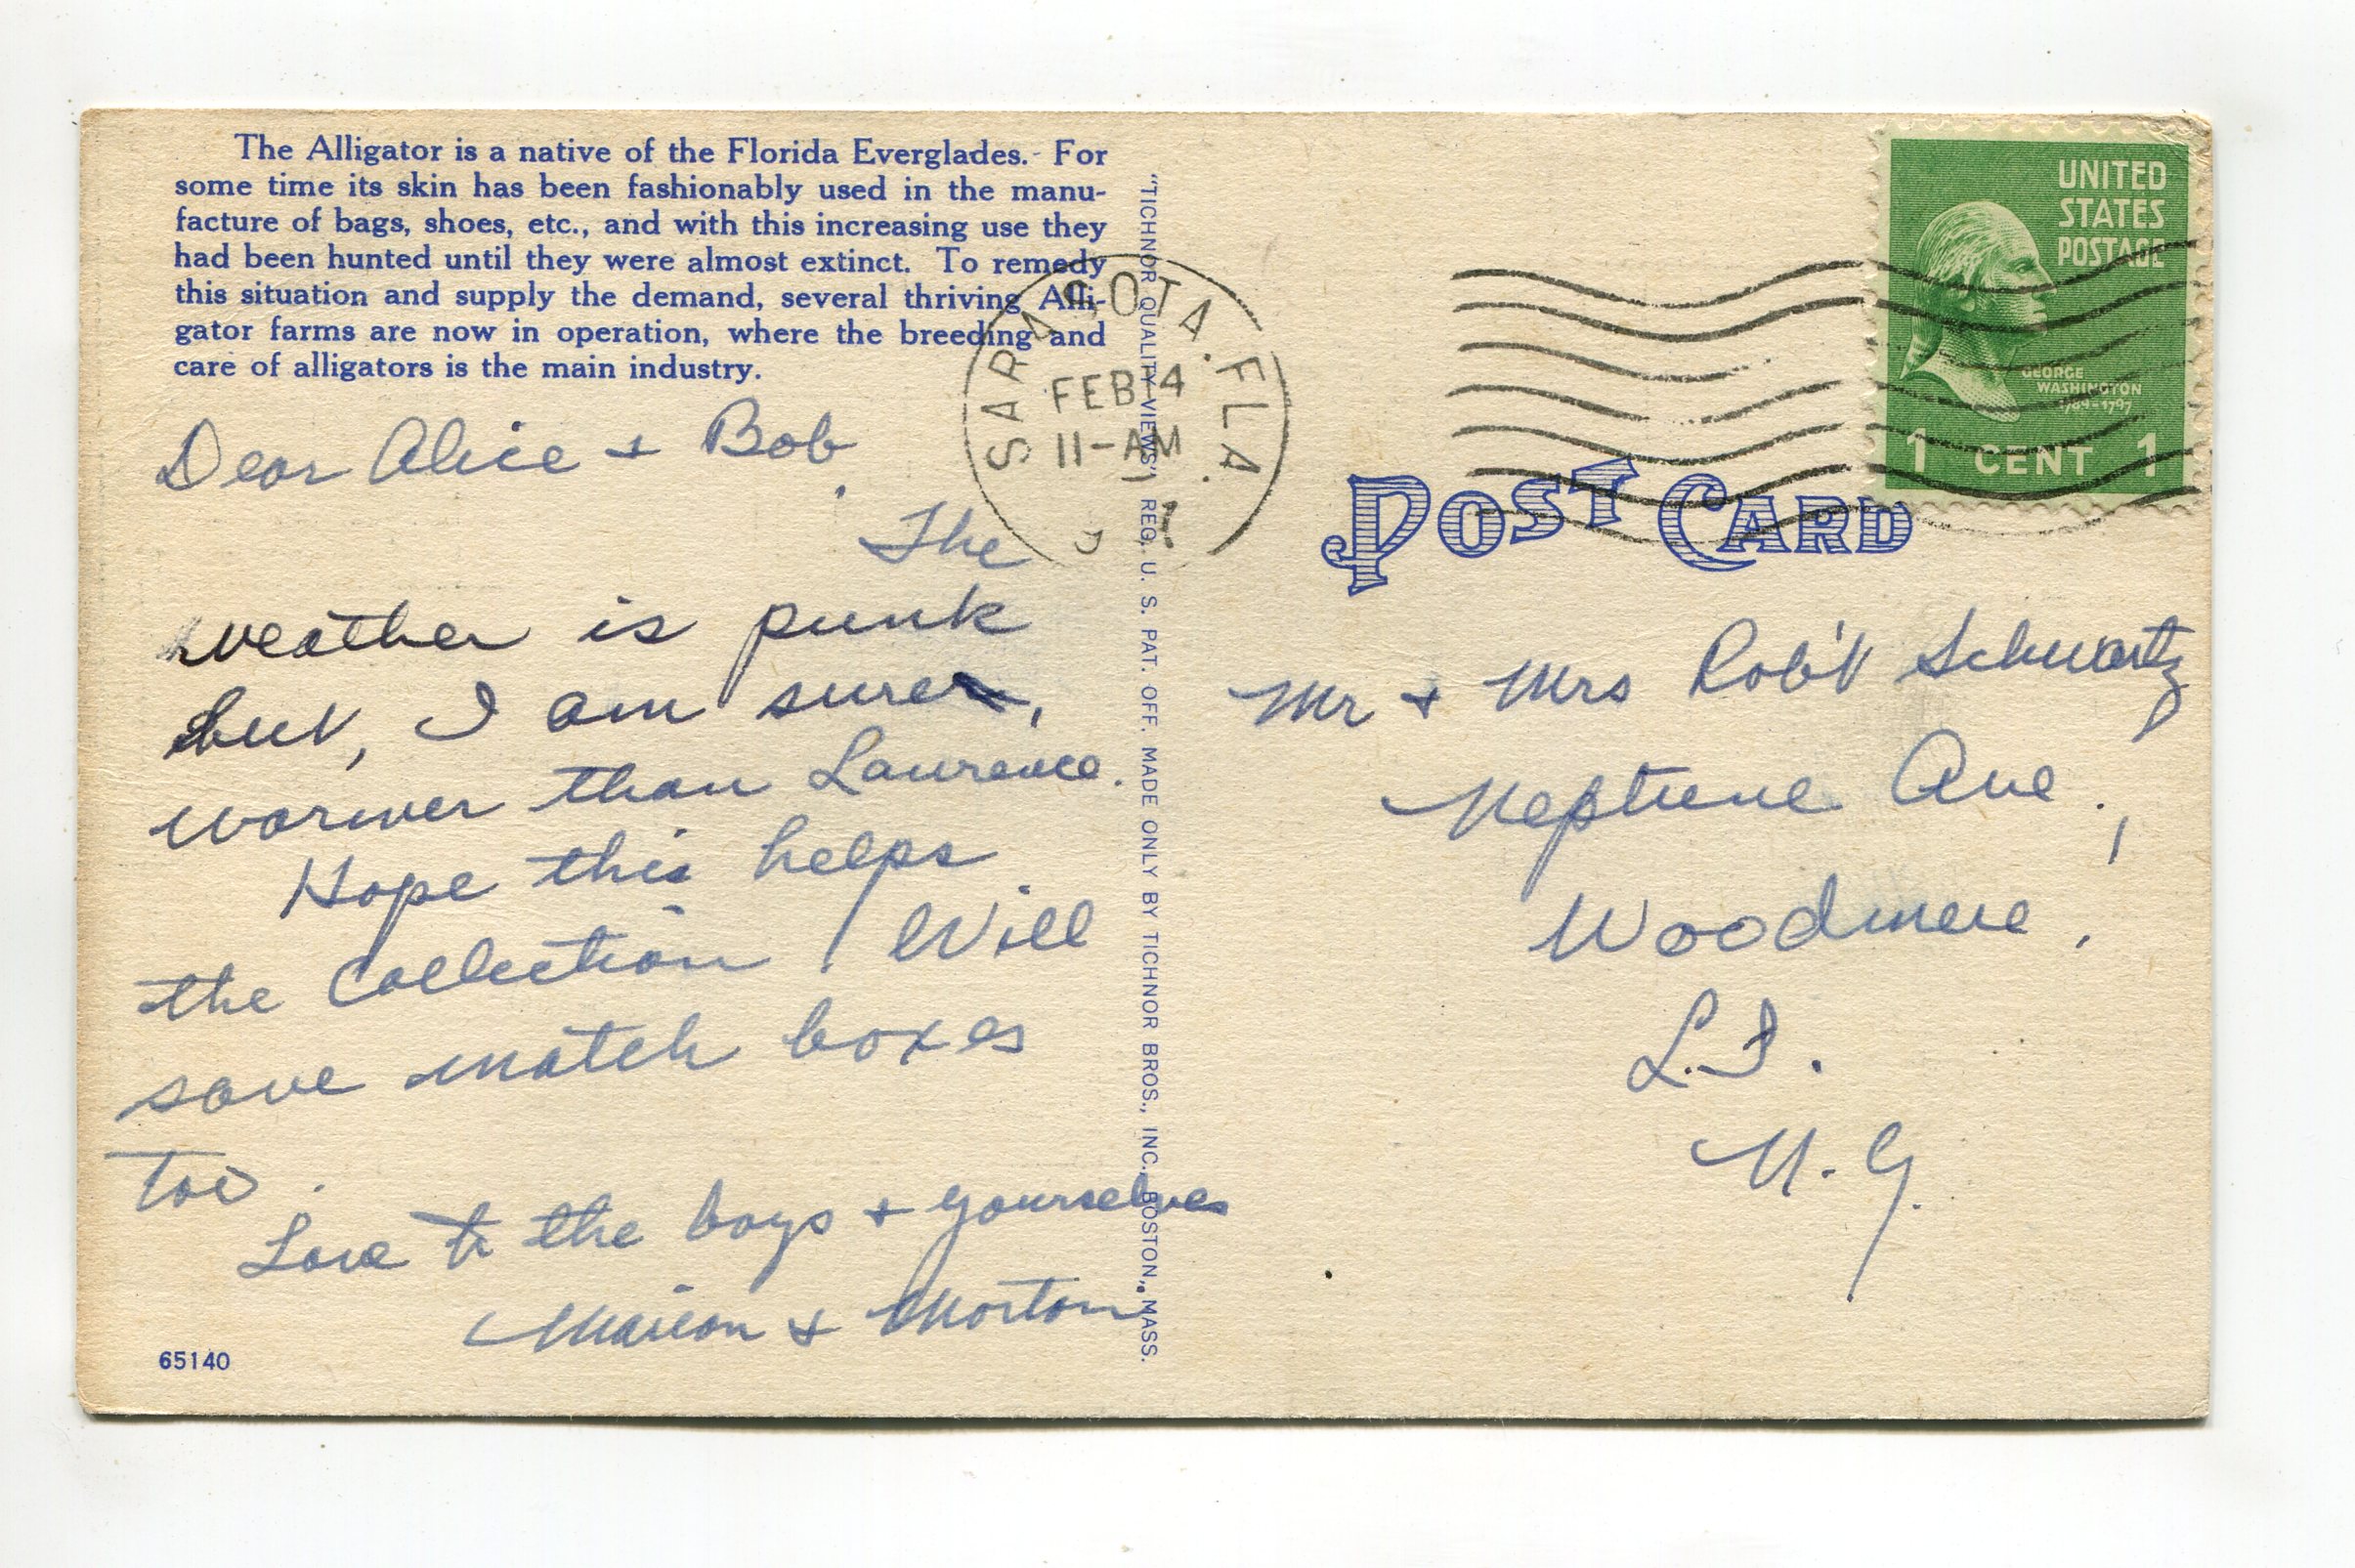 The Alligator is a native of the Florida Everglades. For
some time its skin has been fashionably used in the manu-
facture of bags, shoes, etc., and with this increasing use they
had been hunted until they were almost extinct. To remedy
this situation and supply the demand, several thriving Alli-
gator farms are now in operation, where the breeding and
care of alligators is the main industry.
Dear Alice + Bob,
The
weather is punk
but, I am sure,
warmer than Lawrence.
Hope this helps
the collection! Will
save match boxes
too.
Love to the boys + yourselves
Marion + Morton
65140
"TICHNOR QUALITY VIEWS" REG. U. S. PAT. OFF. MADE ONLY BY TICHNOR BROS., INC., BOSTON, MASS.
SARASOTA. FLA.
FEB 4
11-AM
UNITED
STATES
POSTAGE
GEORGE
WASHINGTON
1789-1797
1 CENT 1
POST CARD
Mr + Mrs Rob't Schwartz
Neptune Ave.,
Woodmere,
L.I.
N.Y.